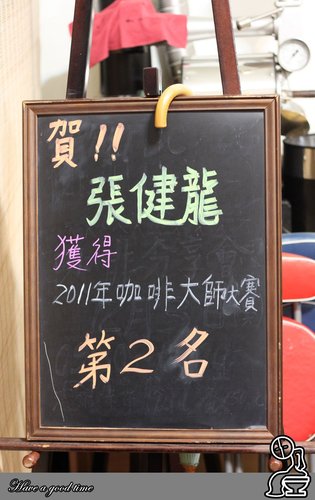 賀!!
張健龍
獲得
2011年咖啡大師大賽
第2名
Have a good time